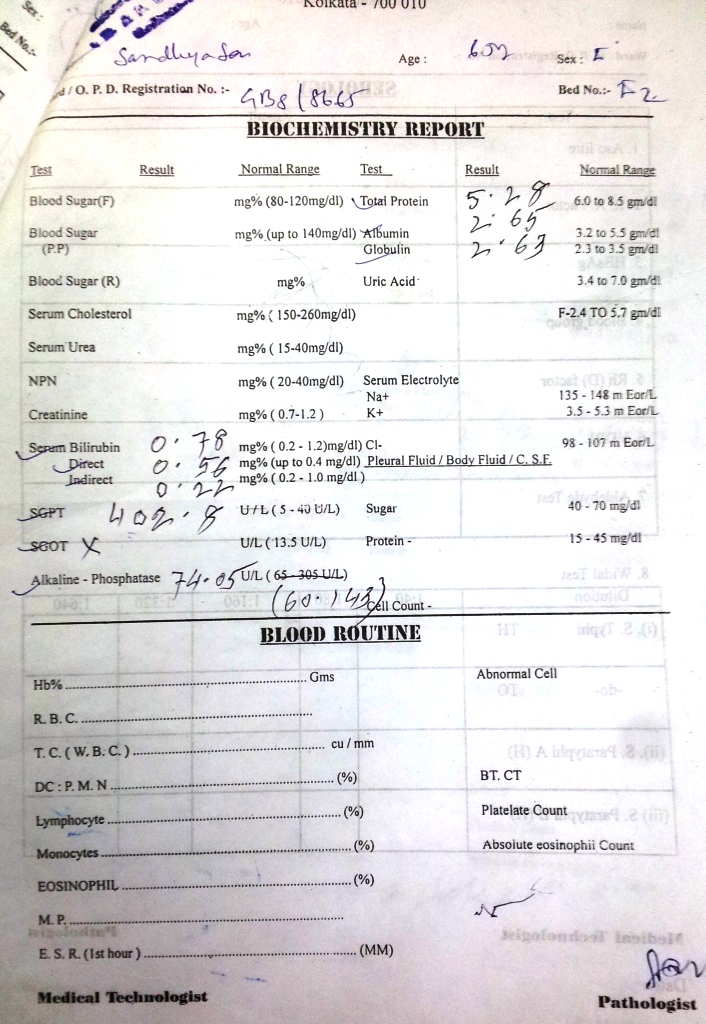 Kolkata - 700 010
Sex :
Bed No.:-
Sandhya Sen Age : 60y Sex : F
d / O. P. D. Registration No. :- GB8/8665 Bed No.:- F2
BIOCHEMISTRY REPORT
Test Result Normal Range Test Result Normal Range
Blood Sugar(F) mg% (80-120mg/dl) Total Protein 5.28 6.0 to 8.5 gm/dl
Blood Sugar mg% (up to 140mg/dl) Albumin 2.65 3.2 to 5.5 gm/dl
(P.P) Globulin 2.63 2.3 to 3.5 gm/dl
Blood Sugar (R) mg% Uric Acid 3.4 to 7.0 gm/dl
Serum Cholesterol mg% ( 150-260mg/dl) F-2.4 TO 5.7 gm/dl
Serum Urea mg% ( 15-40mg/dl)
NPN mg% ( 20-40mg/dl) Serum Electrolyte
Na+ 135 - 148 m Eor/L
Creatinine mg% ( 0.7-1.2 ) K+ 3.5 - 5.3 m Eor/L
Serum Bilirubin 0.78 mg% ( 0.2 - 1.2)mg/dl) Cl- 98 - 107 m Eor/L
Direct 0.56 mg% (up to 0.4 mg/dl) Pleural Fluid / Body Fluid / C. S.F.
Indirect 0.22 mg% ( 0.2 - 1.0 mg/dl )
SGPT 402.8 U/L ( 5 - 40 U/L) Sugar 40 - 70 mg/dl
SGOT X U/L ( 13.5 U/L) Protein - 15 - 45 mg/dl
Alkaline - Phosphatase 74.05 U/L ( 65 - 305 U/L)
(60-143) Cell Count -
BLOOD ROUTINE
Hb% .......... Gms Abnormal Cell
R. B. C. ..........
T. C. ( W. B. C. ) .......... cu / mm
DC : P. M. N .......... (%) BT. CT
Lymphocyte .......... (%) Platelate Count
Monocytes .......... (%) Absolute eosinophil Count
EOSINOPHIL .......... (%)
M. P. ..........
E. S. R. (1st hour ) .......... (MM)
Medical Technologist Pathologist